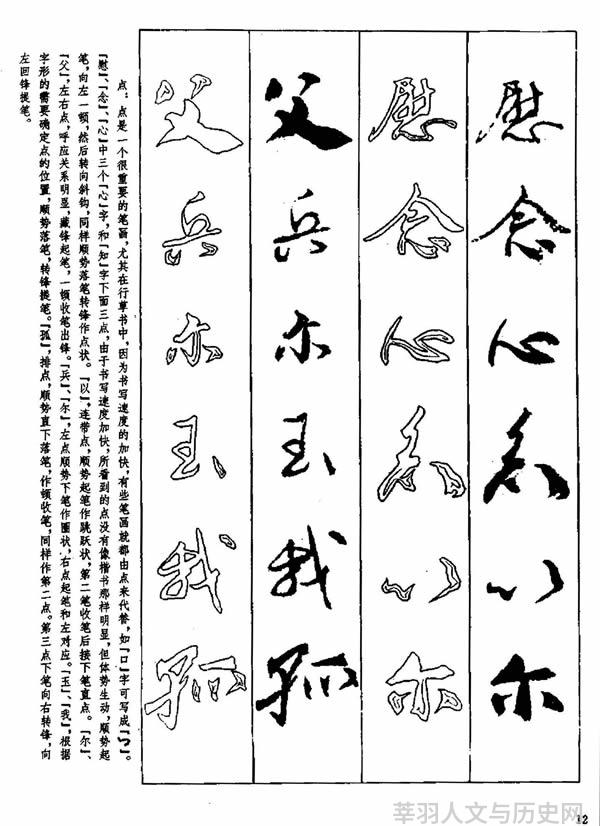 慰念心知以尔
慰念心知以尔
父兵尔玉我孤
父兵尔玉我孤
点：点是一个很重要的笔画，尤其在行草书中，因为书写速度的加快，有些笔画就都由点来代替，如『口』字可写成『つ』。
『慰』、『念』、『心』中三个『心』字，和『知』字下面三点，由于书写速度加快，所看到的点没有像楷书那样明显，但体势生动，顺势起
笔，向左一顿，然后转向斜钩，同样顺势落笔转锋作点状。『以』，连带点，顺势起笔作跳跃状，第二笔收笔后接下笔直点。『尔』、
『父』，左右点，呼应关系明显，藏锋起笔，一顿收笔出锋。『兵』、『尔』，左点顺势下笔作圈状，右点起笔和左对应。『玉』、『我』，根据
字形的需要确定点的位置，顺势落笔，转锋提笔。『孤』，排点，顺势直下落笔，作顿收笔，同样作第二点。第三点下笔向右转锋，向
左回锋提笔。
12
莘羽人文与历史网